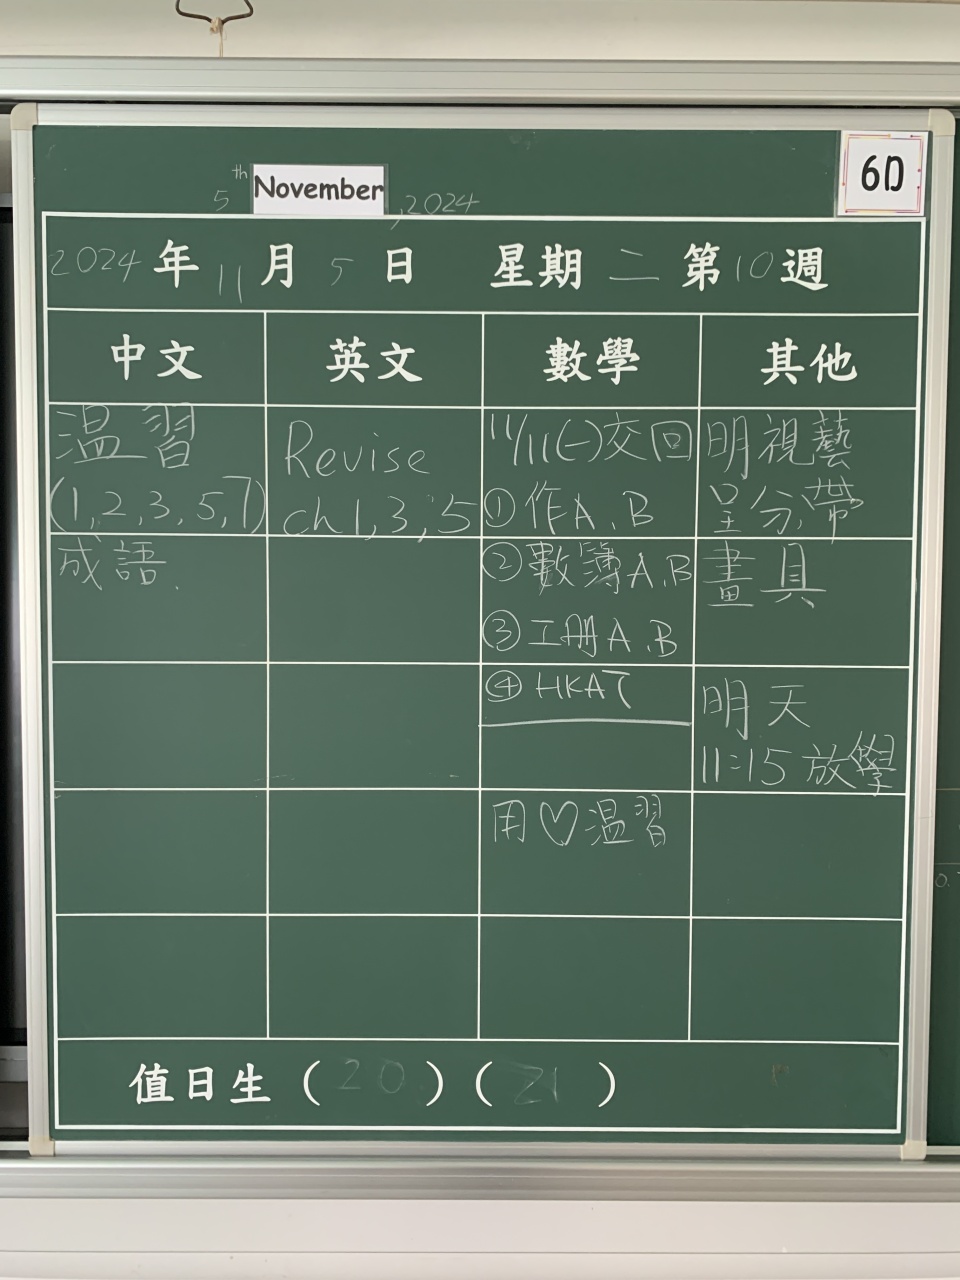 6D
5th November, 2024
2024年11月5日 星期二 第10週
中文 英文 數學 其他
温習
(1,2,3,5,7)
成語.
Revise
ch1,3,5
11/11(一)交回
①作A、B
②數簿A、B
③工冊A、B
④HKAT
用♡温習
明視藝
呈分,帶
畫具
明天
11:15放學
值日生(20)(21)